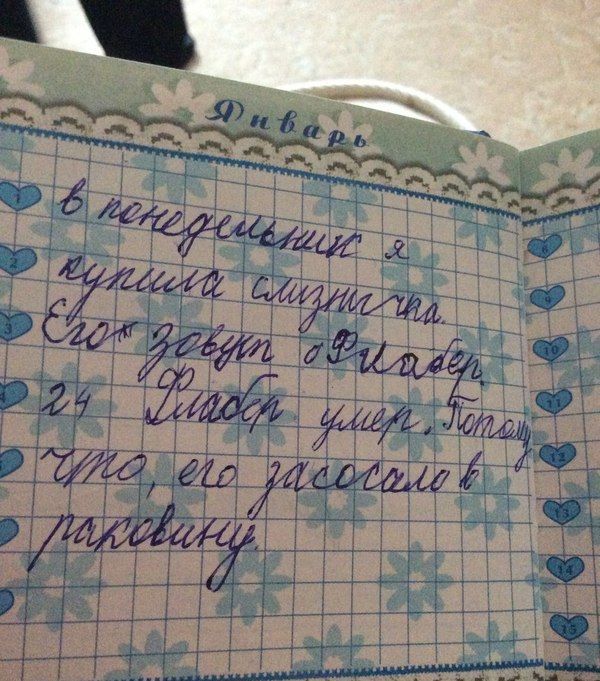 Январь
1
в понедельник я
2
купила слизнячка.
3
Его зовут Флабер.
4
24 Флабер умер. Потому
что, его засосало в
раковину.
9
10
11
12
13
14
15